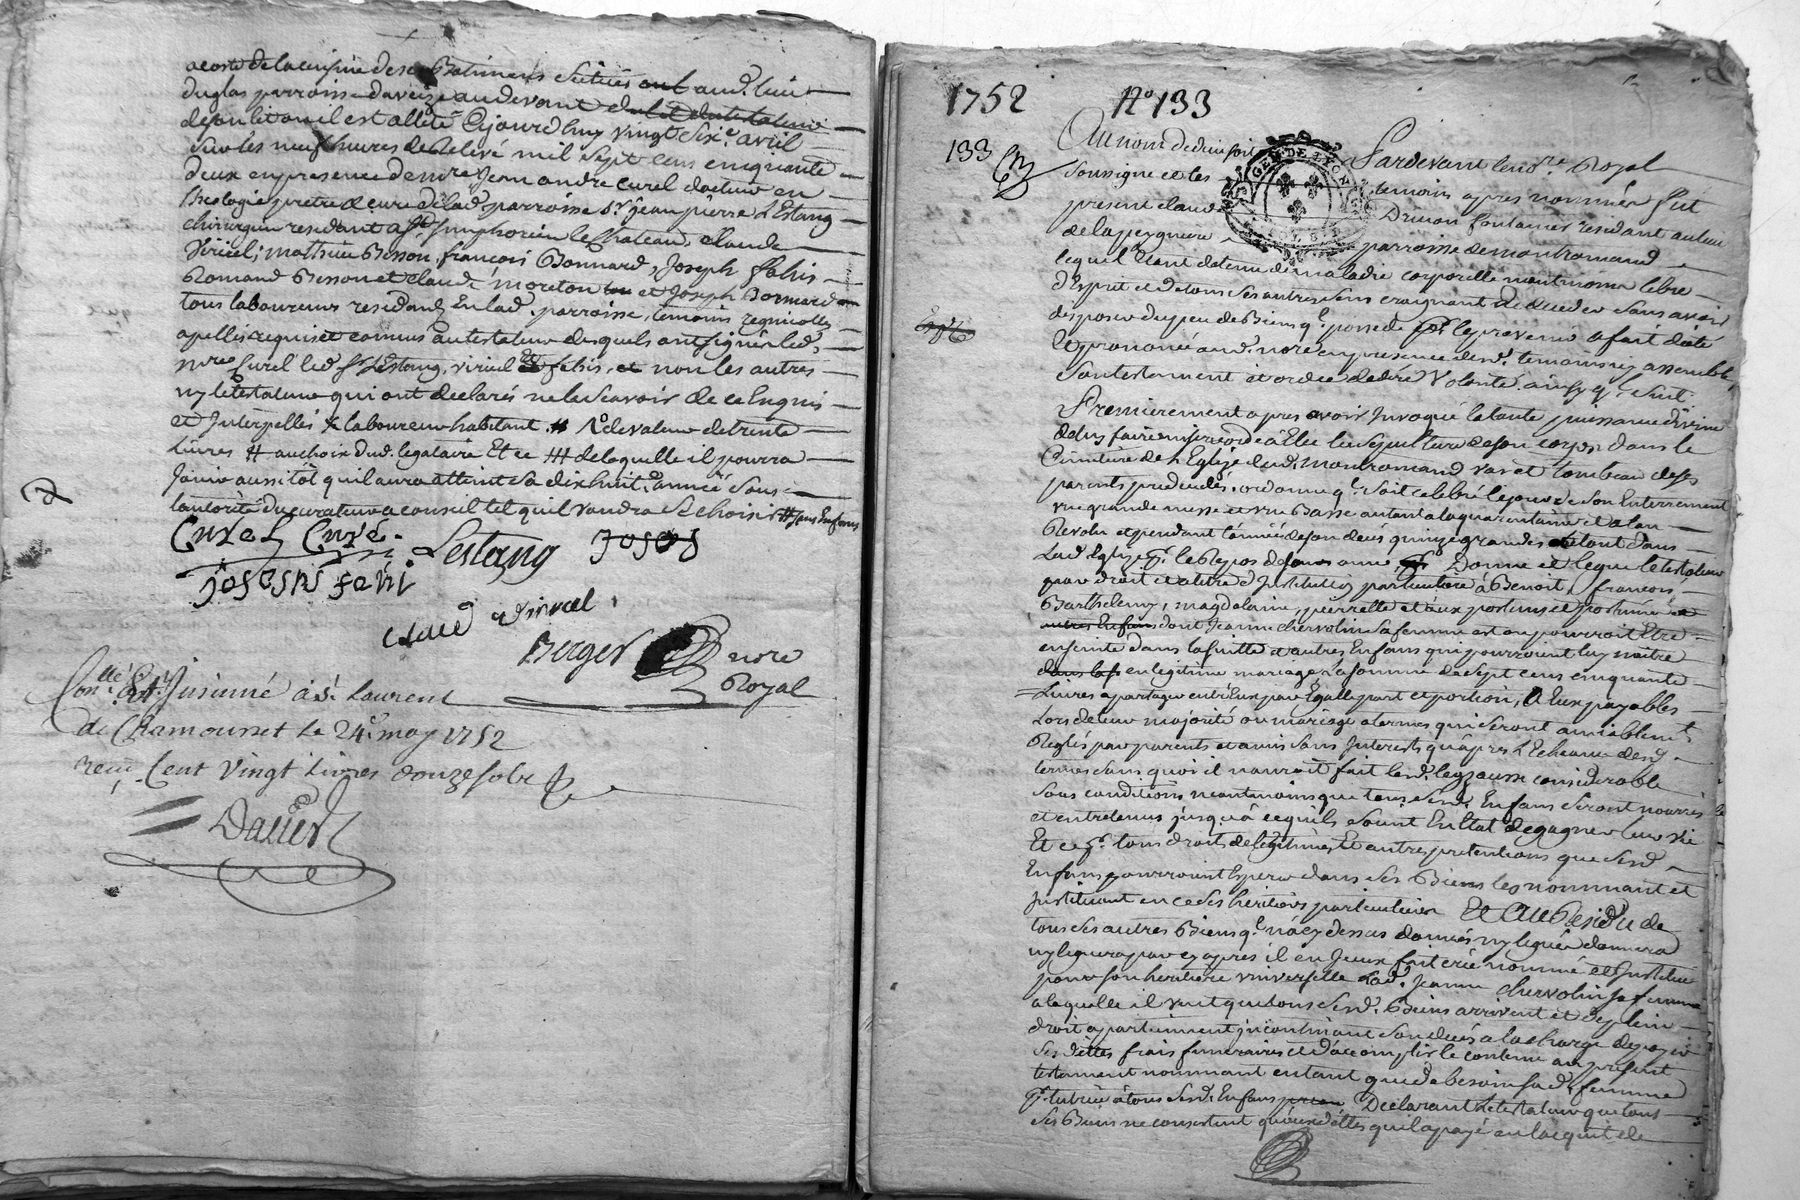 a costé de la cuisine de ses Batimens scitués aud. lieu
duglas parroisse daveize audevant
desonlit ou il est allité Cejourdhuy vingt sixe. avril
sur les neuf heures de Relevé mil sept cens cinquante
deux en presence de mre. Jean andre curel docteur en
theologie pretre & curé de lad. parroisse sr. jean pierre Lestang
chirurgien residant a st. simphorien le chateau, claude
Viricel, mathieu Besson, françois Bonnard, Joseph fahis
Romand Besson et claude moreton et Joseph Bonnard
tous laboureurs residants en lad. parroisse, temoins regnicolles
apellés requis et connus autestateur desquels ont signé led.
mre. Curel led. sr. Lestang, viricel & fahis, et non les autres
ny letestateur qui ont declarés ne le scavoir de ce Enquis
et Interpellés laboureur habitant # de valeur de trente
Livres # au choix dud. legataire Et ce ## de laquelle il pourra
Jouir aussitôt quil aura atteint sa dix huit. année sous
lautorité du curateur a conseil tel quil voudra se choisir # sans Enfans
Curel Curé. Lestang
joseph fahi
claude viricel
Berger nore
Royal
Conllé & Insinué à st. Laurent
de Chamousset le 24e. may 1752
recu Cent vingt Livres douze sols
Dalier
1752 No 133
133 Au nom de dieu soit Pardevant le nore. Royal
soussigné et les temoins apres nommés fut
present claude Drivon fontanier residant au lieu
de lapeygneure parroisse de montromand
lequel Etant detenu de maladie corporelle neantmoins libre
d'Esprit et de tous ses autres sens craignant de deceder sans avoir
disposer du peu de Biens ql. possede pr. le prevenir a fait dicté
Et prononcé aud. nore en presence desd. temoins icy assemblés
son testament et ordre de derre Volonté ainsy ql. suit.
Premierement apres avoir Invoqué la toute puissance divine
de luy faire misericorde a Elu la sepulture de son corps dans le
Cimetiere de l'Eglise dud. montromand vas et tombeau de ses
parents predecedés, ordonne ql. soit celebré le jour de son Enterrement
vne grande messe et vne Basse autant a la quarantaine et a lan
Revolu et pendant l'année de son deces quinze grandes et tout dans
Lad. Eglise pr. le Repos de son ame, Donne et legue le testateur
pour droit et a titre d'Institution particuliere à Benoit, françois,
Barthelemy, magdelaine, pierrette et aux posthumes et posthumes
dont Jeanne chervolin sa femme est ou pourroit Etre
enceinte dans la suitte et autres Enfans qui pourroient luy naitre
en legitime mariage la somme de sept cens cinquante
Livres a partager entre Eux par Egalle part et portion, A Eux payables
Lors de leur majorité ou mariage a termes qui seront amiablemt.
Reglés par parents et amis sans Interests qu'apres l'Echeance desd.
termes sans quoi il n'auroit fait lesd. legs aussi considerable
sous conditions neantmoins que tous sesd. Enfans seront nourris
et entretenus jusqu'à ce quils soient En Etat de gagner leur vie
Et ce pr. tous droits de legitimes & autres pretentions que sesd.
Enfans pourroient Esperer dans ses Biens les nommant et
Instituant en ce ses heritiers particuliers Et Au Residu de
tous ses autres Biens ql. n'a cy dessus donnés ny legués donnera
ny leguera par cy apres il en Iceux fait crée nommé et Institue
pour son heritiere vniverselle Lad. Jeanne chervolin sa femme
a laquelle il veut que tous sesd. Biens arrivent et de plein
droit apartiennent incontinant son deces a la charge de payer
ses dettes frais funeraires et d'accomplir le contenu au present
testament nommant entant que de besoin sad. femme
pr. tutrice à tous sesd. Enfans Declarant le testateur que tous
ses Biens ne consistent qu'aux dettes quil a payé en lacquit de